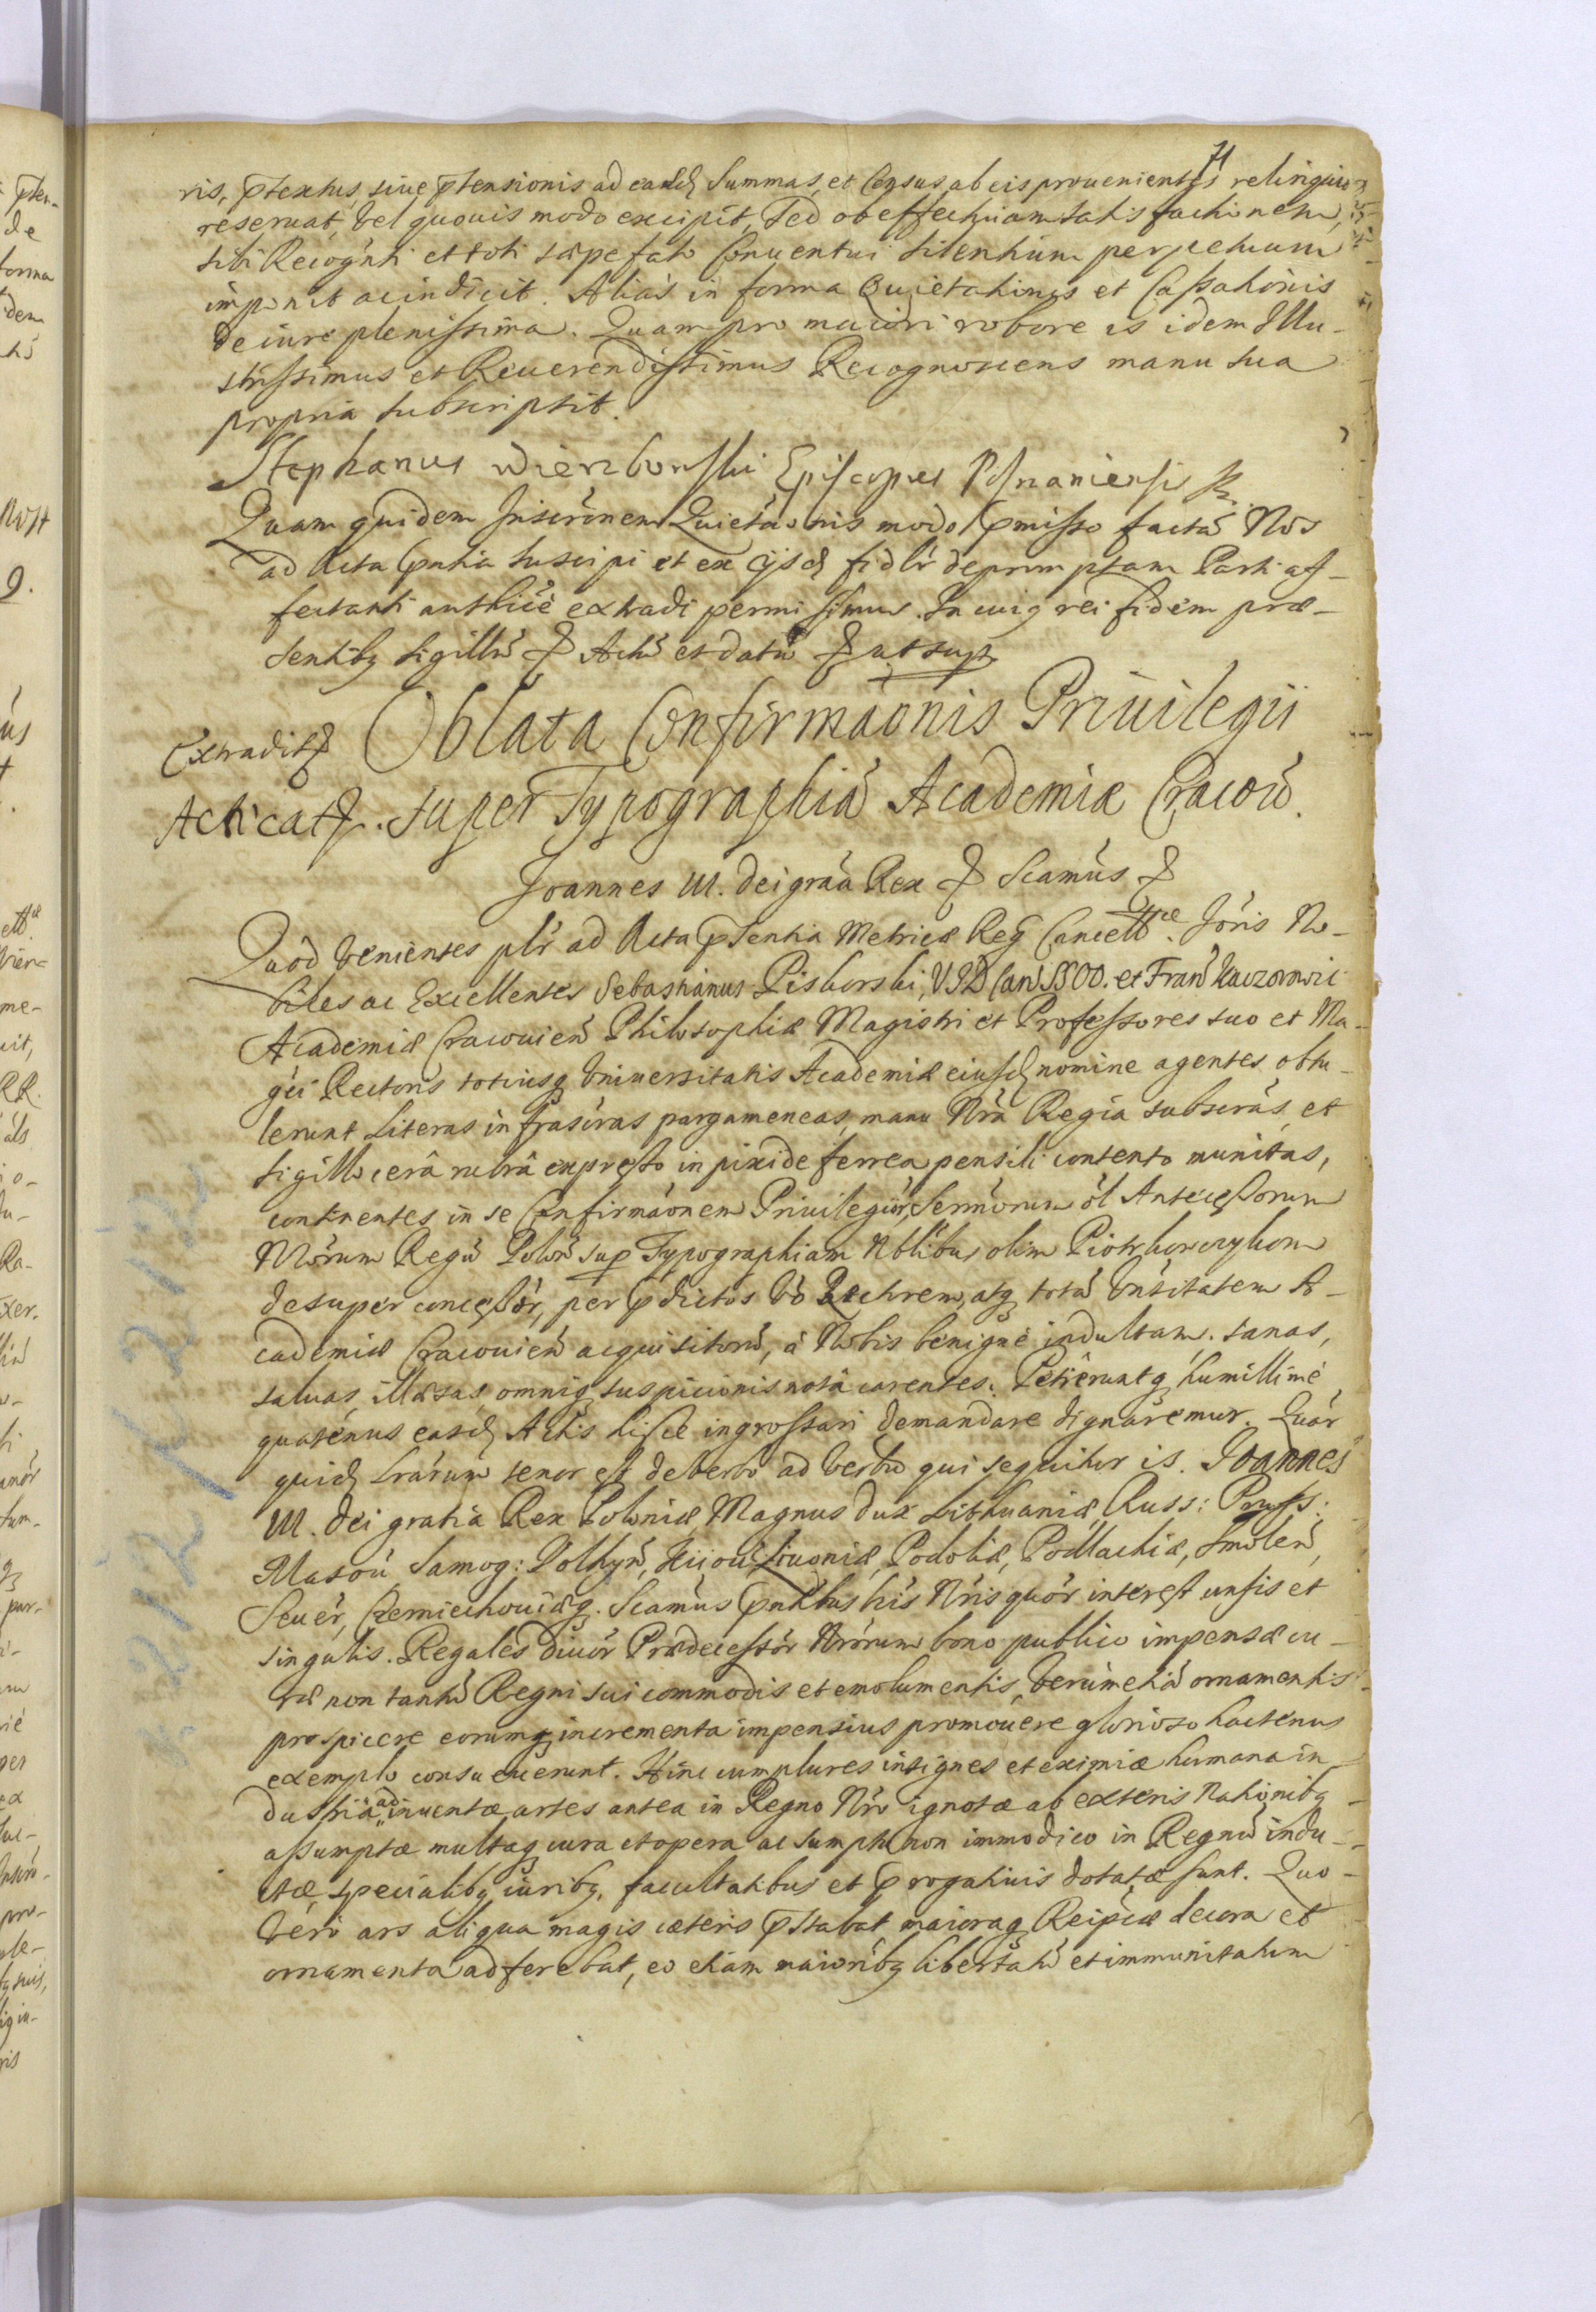 71
ris, ptextus, siue ptensionis ad easdem Summas, et Census ab eis prouenientes relinquit
reseruat, vel quouis modo excipit, Sed ob effectiuam satisfactionem,
sibi Recognti et toti sæpefato Conuentui silentium perpetuum
imponit ac indicit. Alias in forma Quietationis et Cassationis
de iure plenissima. Quam pro maiori robore is idem Illu-
strissimus et Reuerendissimus Recognoscens manu sua
propria subscripsit.
Stephanus Wierzbowski Episcopus Posnaniensis
Quam quidem Inscrōnem Quietāonis modo pmisso factā Nos
ad Acta pntia suscipi et ex ijsd fidlr depromptam Parti af-
fectanti authice extradi permisimus. In cuiq rei fidem præ-
sentibq sigillū Actū et datū ut sup
Oblata Confirmāonis Priuilegii
Extradit
Acticat. super Typographiā Academiæ Cracou.
Joannes III. Dei grāa Rex Scamus
Quod venientes plr ad Acta psentia Metricæ Reg Cancellræ. Joris No-
biles ac Excellentes Sebastianus Piskorski, VJD Can SSOO. et Fran Kaczorowic
Academiæ Cracouien Philosophiæ Magistri et Professores suo et Ma-
gci Rectoris totiusq Vniuersitatis Academiæ eiusd nomine agentes, obtu-
lerunt Literas infrascras pargameneas, manu Nra Regia subscras, et
sigillo cerâ rubrâ expresso in pixide ferrea pensili contento munitas,
continentes in se Confirmāonem Priuilegior, Sermorum ol Antecessorum
Nrorum Regū Polon sup Typographiam Nblibus olim Piotrkowczykom
desuper concessor, per pdictos Dō Rectorem, atq totā Vnsitatem A-
cademiæ Cracouien acquisitorū, à Nobis benignè indultam, sanas,
saluas, illæsas, omniq suspicionis notâ carentes. Petieruntq humillimè
quatenus easd Actis hisce ingrossari demandare dignaremur. Quar
quid Lrarum tenor est de verbo ad verbū qui sequitur is. Joannes
III. Dei gratia Rex Poloniæ Magnus Dux Lithuaniæ, Russ: Pruss:
Masou Samog: Volhyn, Kijou, Liuoniæ, Podoliæ, Podlachiæ, Smolen,
Seuer, Czerniechouiæq. Scamus pntibus his Nris quor interest unsis et
singulis. Regales Diuor Prædecessor Nrorum bono publico impensæ cu-
ræ non tantū Regni sui commodis et emolumentis, verùm etiā ornamentis
prospicere eorumq incrementa impensius promouere glorioso hactenus
exemplo consueuerunt. Hinc cumplures insignes et eximiæ humana in-
dustriâ adinuentæ artes antea in Regno Nro ignotæ ab exteris Nationibq
assumptæ multaq cura et opera ac sumptu non immodico in Regnū indu-
ctæ, specialibq iuribq, facultatibus et progatiuis dotatæ sunt. Quo
verò ars aliqua magis cæteris pstabat maioraq Reipcæ decora et
ornamenta adferebat, eo etiam maioribq libertatū et immunitatum